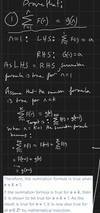 Prove that:
① Σ F(r) = g(n)
n=1: LHS: Σ F(r) =
RHS: g(1) =
As LHS = RHS, summation
formula is true for n=1
Assume that the summation formula
is true for n=k
Σ F(r) = g(k)
When n=k+1 the summation formula
becomes:
Σ F(r) = F(k+1) + Σ F(r)
= F(k+1) + g(k)
= g(k+1)
Therefore, the summation formula is true when
n = k + 1.
If the summation formula is true for n = k, then
it is shown to be true for n = k + 1. As the
result is true for n = 1, it is now also true for
all n ∈ Z⁺ by mathematical induction.